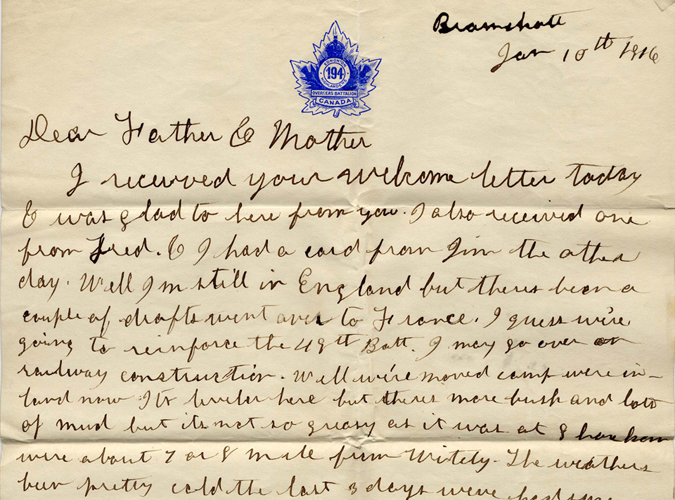 Bramshott
Jan 10th 1916
EDMONTON
194
HIGHLANDERS
OVERSEAS BATTALION
CANADA
Dear Father & Mother
I received your welcome letter today
& was glad to here from you. I also received one
from Fred. & I had a card from Jim the other
day. Well I'm still in England but theres been a
couple of drafts went over to France. I guess we're
going to reinforce the 49th Batt. I may go over on
railway construction. Well we're moved camp were in-
land now Its here but theres more bush and lots
of mud but its not so greasy as it was at
were about 7 or 8 mile from Witely. The weathers
been pretty cold the last 3 days were had some